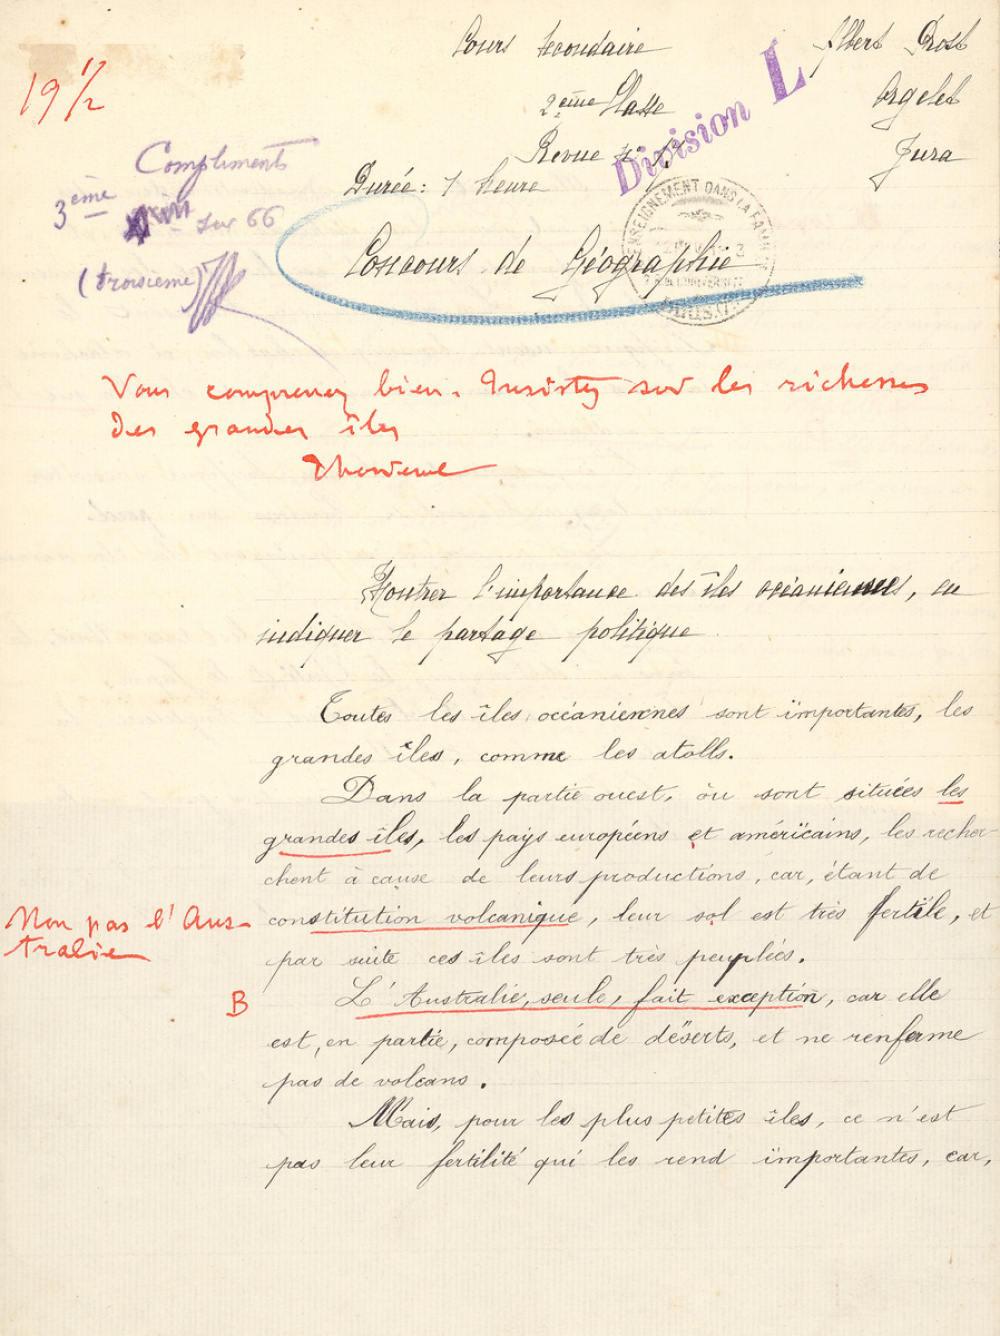 Cours secondaire
Albert Prost
19 1/2
2ème Classe
Orgelet
Division L
Revue n°
Jura
Compliments
Durée : 1 heure
3ème
sur 66
ENSEIGNEMENT DANS LA FAMILLE
(troisième)
Concours de Géographie
PARIS.
Vous comprenez bien. Insistez sur les richesses
des grandes îles
Montrer l'importance des îles océaniennes, en
indiquer le partage politique
Toutes les îles océaniennes sont importantes, les
grandes îles, comme les atolls.
Dans la partie ouest, où sont situées les
grandes îles, les pays européens et américains, les recher-
chent à cause de leurs productions, car, étant de
Non pas l'Aus-
tralie
constitution volcanique, leur sol est très fertile, et
par suite ces îles sont très peuplées.
B
L'Australie, seule, fait exception, car elle
est, en partie, composée de déserts, et ne renferme
pas de volcans.
Mais, pour les plus petites îles, ce n'est
pas leur fertilité qui les rend importantes, car,